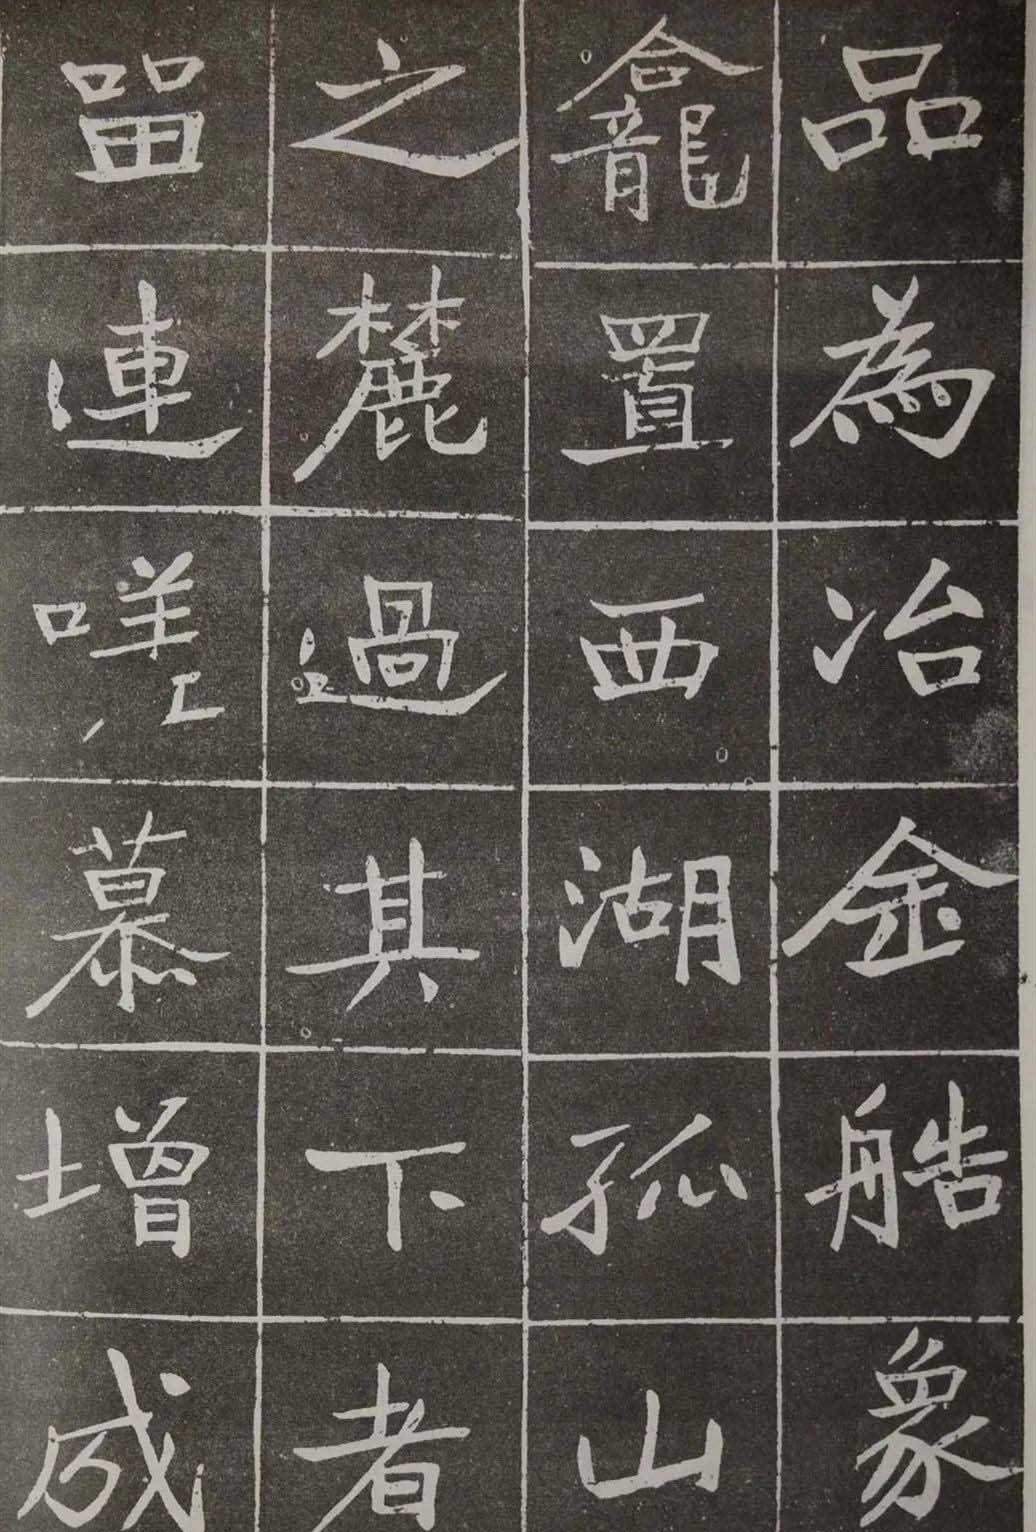 品為冶金艁象
龕置西湖孤山
之麓過其下者
㽞連嗟慕增成